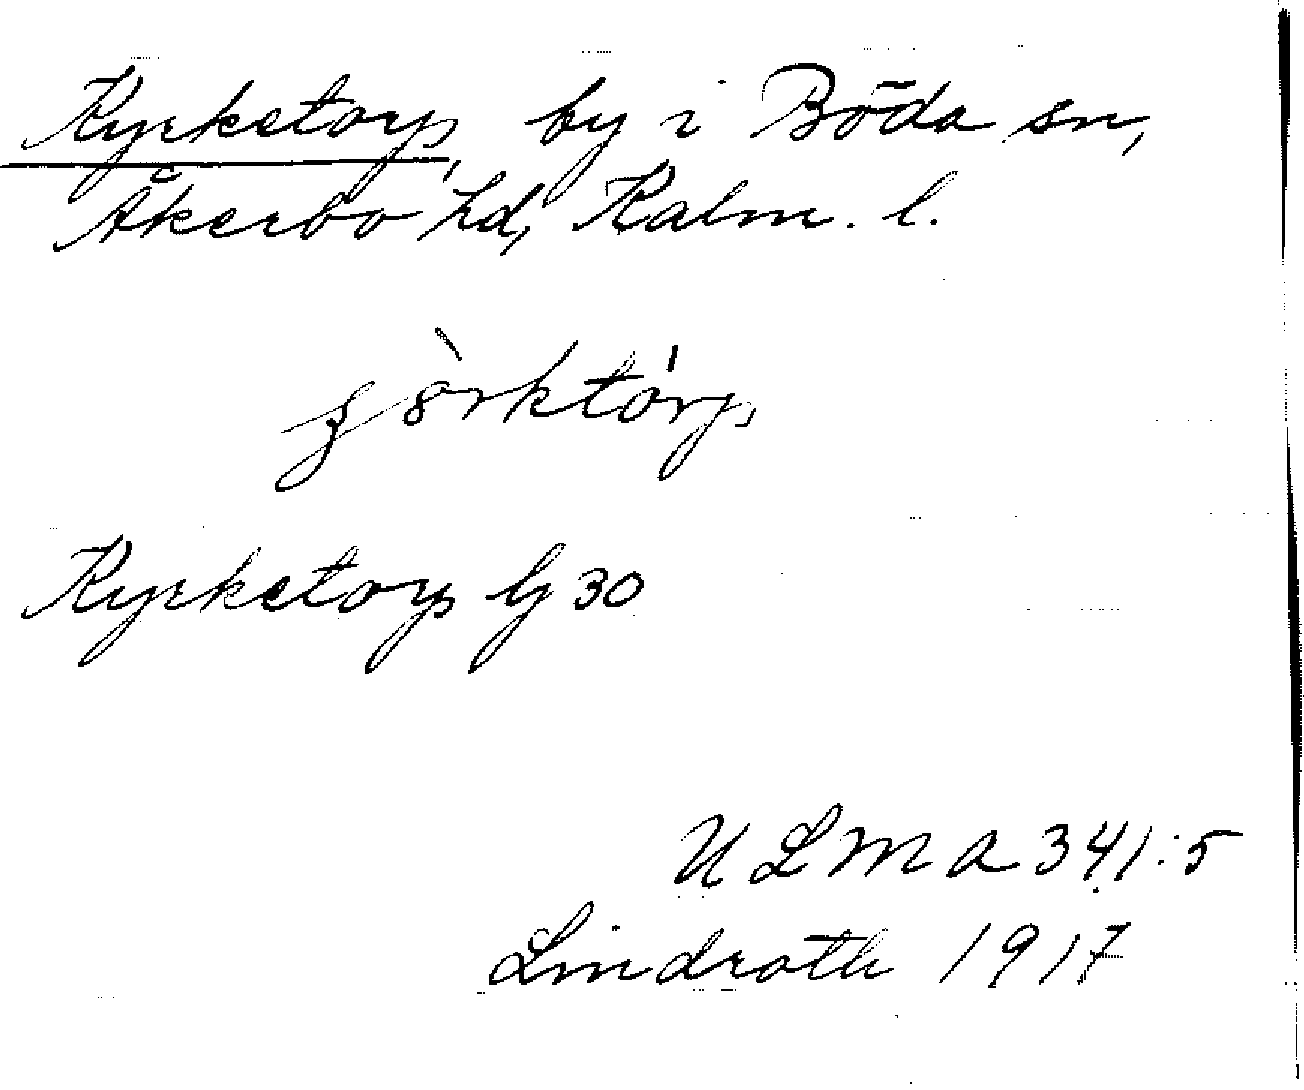 Kyrketorp, by i Böda sn,
Åkerbo hd, Kalm. l.
Kyrketorp Lj 30
U L M A 341:5
Lindroth 1917